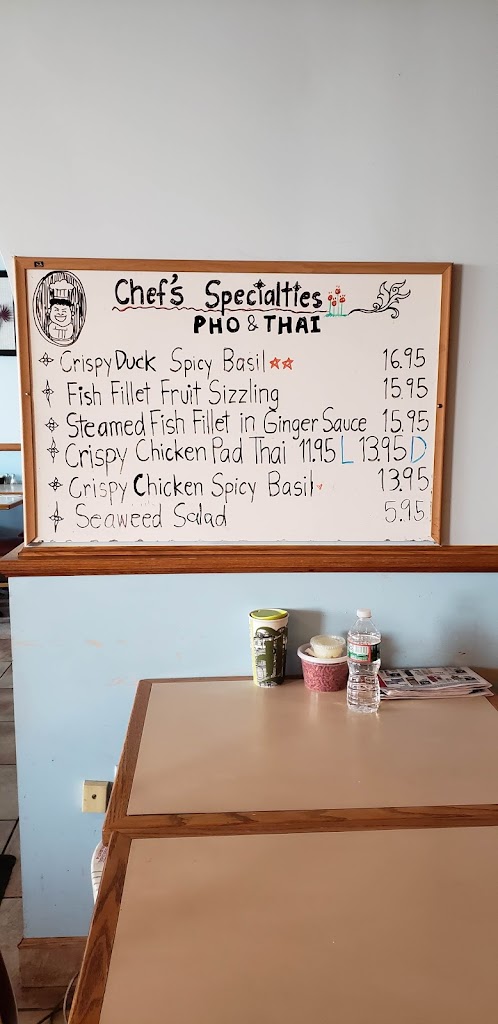 Chef's Specialties
PHO & THAI
Crispy Duck Spicy Basil 16.95
Fish Fillet Fruit Sizzling 15.95
Steamed Fish Fillet in Ginger Sauce 15.95
Crispy Chicken Pad Thai 11.95 L 13.95 D
Crispy Chicken Spicy Basil 13.95
Seaweed Salad 5.95